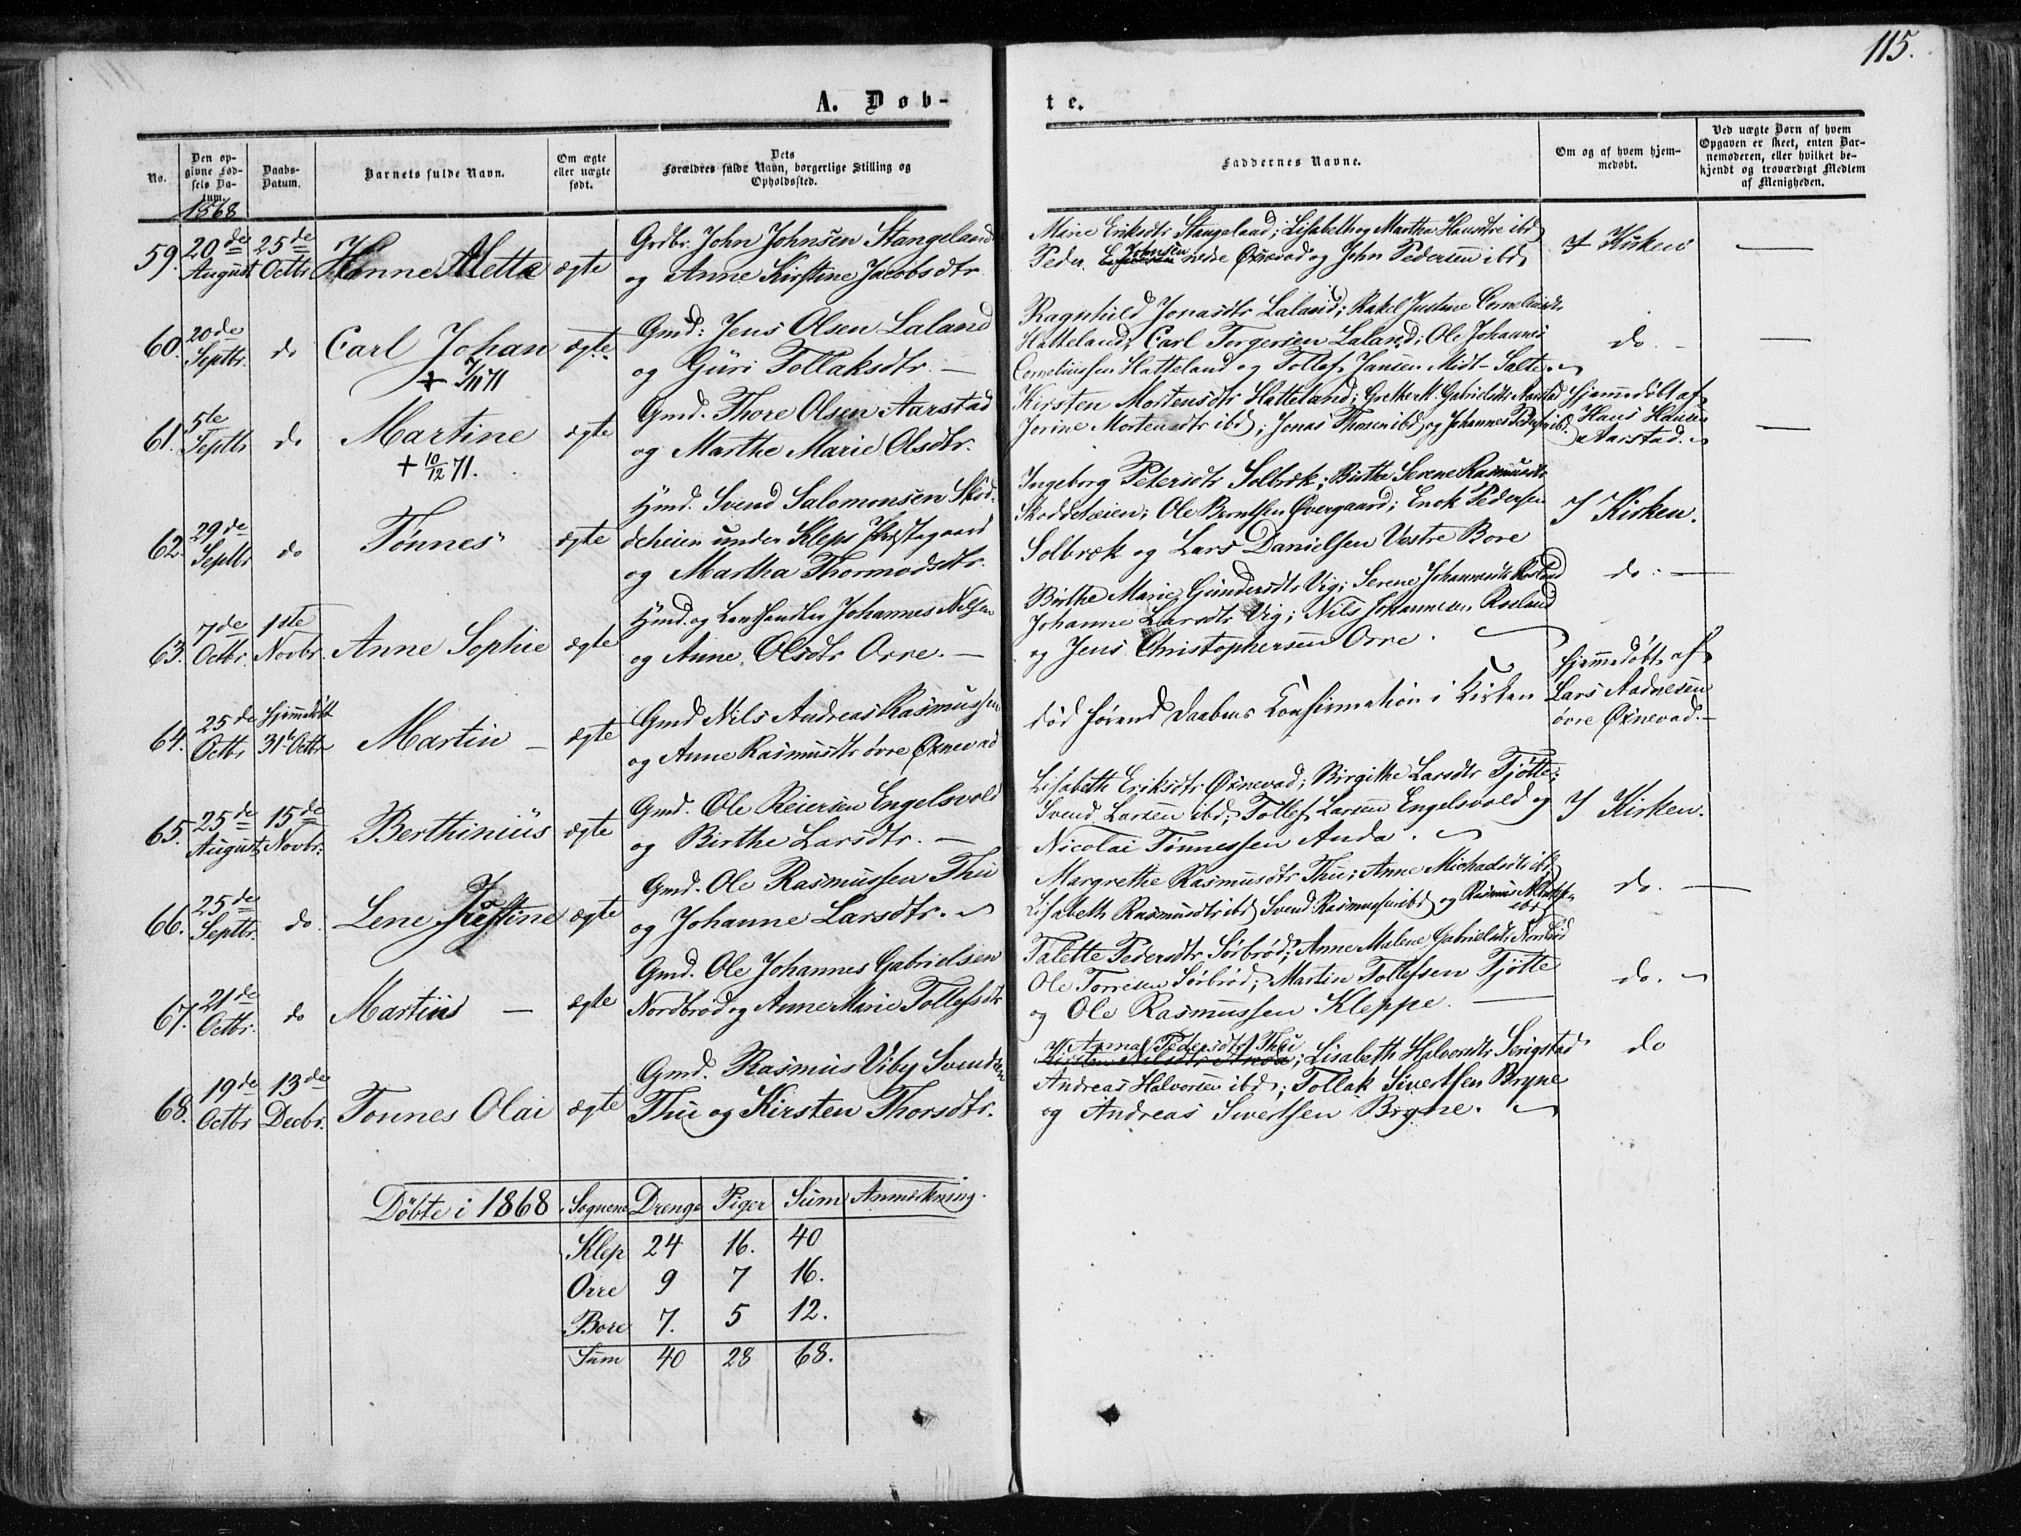 115.
A. Døb-
te.
No.
Den op-
givne Fød-
sels Da-
tum.
Daabs-
Datum.
Barnets fulde Navn.
Om ægte
eller uægte
født.
Dets
Forældres fulde Navn, borgerlige Stilling og
Opholdssted.
Faddernes Navne.
Om og af hvem hjem-
medøbt.
Ved uægte Børn af hvem
Opgaven er skeet, enten Bar-
nemoderen, eller hvilket be-
kjendt og troværdigt Medlem
af Menigheden.
1868
59. 20de August 25de Octbr Hanne Mette ægte
Grdbr. John Johnsen Stangeland
og Anne Kirstine Jacobsdtr
Marie Eriksdtr Stangeland; Lisabeth og Martha Hansdtre ibd
Peder Johnsen nedre Øxnevad og John Pedersen ibd
I Kirken
60. 20de Septbr. do Carl Johan ægte
+ 7/11 71
Gmd: Jens Olsen Laland
og Guri Tollaksdtr. —
Ragnhild Jonasdtr Laland; Rakel Justine Corneliusdtr
Hatteland; Carl Torgersen Laland; Ole Johannes
Corneliussen Hatteland og Tollef Jansen Midt-Salte
do. —
61. 5te Septbr do Martine ægte
+ 10/12 71.
Gmd. Thore Olsen Aarstad
og Marthe Marie Olsdtr.
Kirsten Mortensdtr Hatteland; Grethe M. Gabrielsdtr Aarstad
Jorine Mortensdtr ibd; Jonas Thosen ibd og Johannes Pedersen ibd.
Hjemmedøbt af
Hans Hansen
Aarstad.
62. 29de Septbr do Tönnes ægte
Hmd. Svend Salomonsen Skod-
deheien under Kleps Præstegaard
og Martha Thormodsdtr.
Ingeborg Petersdtr Solbræk; Birthe Serene Rasmusdtr
Skoddeheien; Ole Berntsen Øvergaard; Enok Pedersen
Solbræk og Lars Danielsen Vestre Bore
I Kirken.
63. 7de Octbr. 1ste Novbr. Anne Sophie ægte
Hmd. og Landhandler Johannes Nilsen
og Anne Olsdtr Orre. —
Birthe Marie Gundersdtr Vig; Serene Johannesdtr Roeland
Johanne Larsdtr Vig; Nils Johannesen Roeland
og Jens Christophersen Orre.
do. —
64. 25de Octbr Hjemmedøbt 31te Octbr Martin — ægte
Gmd Nils Andreas Rasmussen
og Anne Rasmusdtr øvre Øxnevad
død førend Daabens Confirmation i Kirken
Hjemmedøbt af
Lars Aadnesen
øvre Øxnevad. —
65. 25de August 15de Novbr. Berthinius ægte
Gmd. Ole Reiersen Engelsvold
og Birthe Larsdtr. —
Lisabeth Eriksdtr Øxnevad; Birgithe Larsdtr Tjøtte;
Svend Larsen ibd; Tollef Larsen Engelsvold og
Nicolai Tønnessen Anda.
I Kirken.
66. 25de Septbr. do. Lene Justine ægte
Gmd. Ole Rasmussen Thu
og Johanne Larsdtr.
Margrethe Rasmusdtr Thu; Anne Michaelsdtr ibd
Lisabeth Rasmusdtr ibd Svend Rasmussen ibd og Rasmus
do. —
67. 21de Octbr. do Martius — ægte
Gmd. Ole Johannes Gabrielsen
Nordbrød og Anne Marie Tollefsdtr
Talette Pedersdtr Sørbrød; Anne Malene Gabrielsdtr Nordbrød
Ole Torresen Sørbrød; Martin Tollefsen Tjøtte
og Ole Rasmussen Kleppe. —
do.
68. 19de Octbr 13de Decbr. Tönnes Olai ægte
Gmd. Rasmus Viby Svendsen
Thu og Kirsten Thorsdtr.
Anna Pedersdtr Thu
Kirsten Nilsdtr Anda; Lisabeth Halvorsdtr Serigstad
Andreas Halvorsen ibd; Tollak Sivertsen Bryne
og Andreas Sivertsen Bryne.
do
Döbte i 1868 Sognene Drenge Piger Sum Anmærkning.
Klep 24 16. 40
Orre 9 7 16.
Bore 7. 5 12.
Sum 40 28 68.